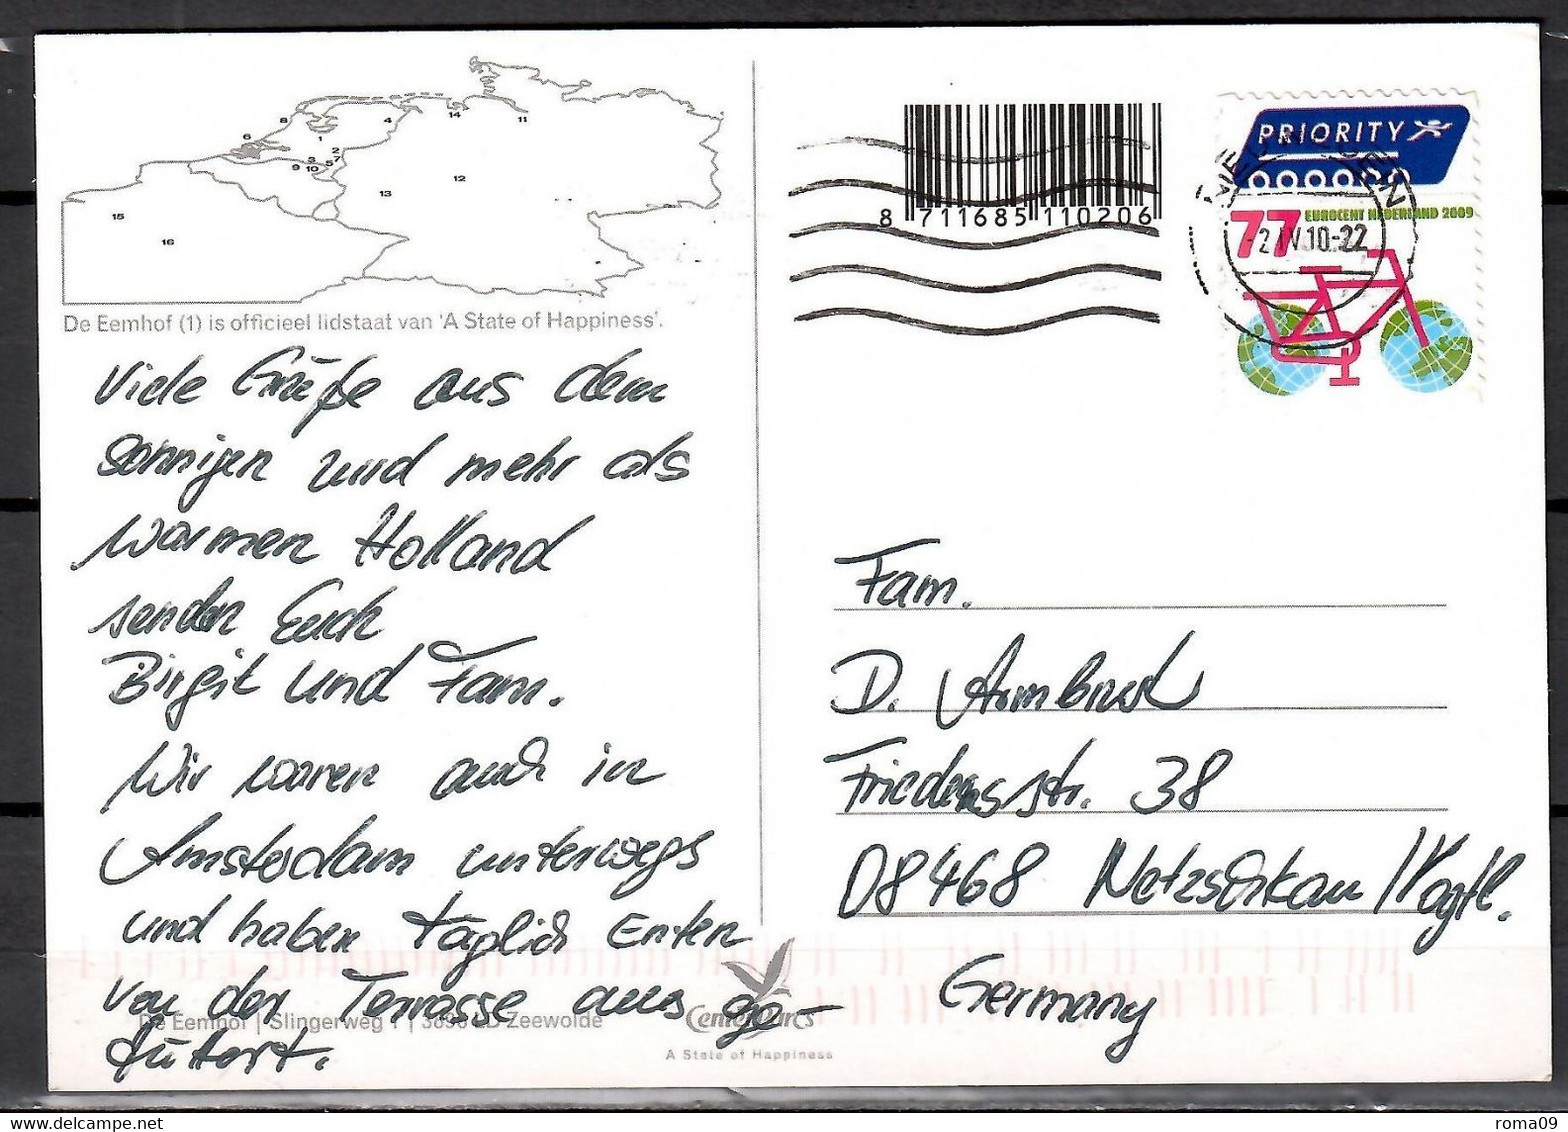 6 8 4 14 11
1
2
9 3 5 7
10
13 12
15
16
De Eemhof (1) is officieel lidstaat van 'A State of Happiness'.
Viele Grüße aus dem
sonnigen und mehr als
warmen Holland
senden Euch
Birgit und Fam.
Wir waren auch in
Amsterdam unterwegs
und haben täglich Enten
von der Terrasse aus ge-
füttert.
De Eemhof | Slingerweg 1 | Zeewolde
CenterParcs
A State of Happiness
8 711685 110206
PRIORITY
77 EUROCENT NEDERLAND 2009
10-22
Fam.
D. Armbrust
Friedensstr. 38
08468 Netzschkau / Vogtl.
Germany
delcampe.net
roma09